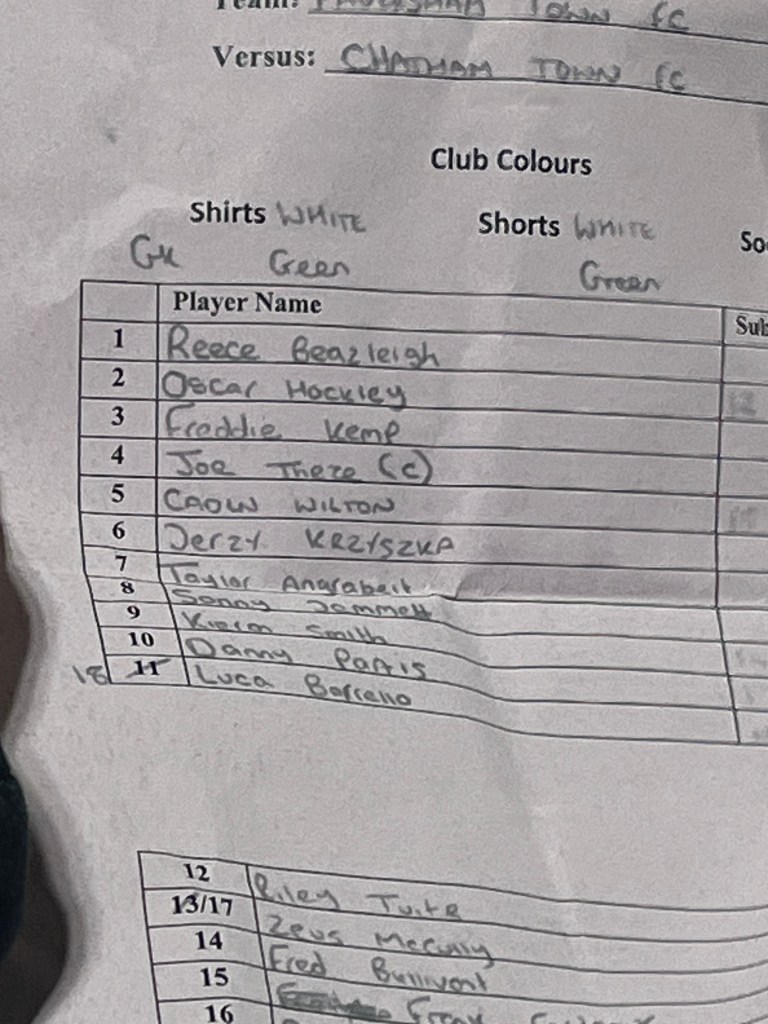 Team: TOWN FC
Versus: CHATHAM TOWN FC
Club Colours
Shirts WHITE Shorts WHITE So
GK Green Green
Player Name Sub
1 Reece Beazleigh
2 Oscar Hockley
3 Freddie Kemp
4 Joe There (c)
5 CAOLN WILTON
6 Jerzy KRZYSZKA
7 Taylor
8 Sonny Jammett
9 Smith
10 Danny Parris
18 11 Luca
12 Riley Tuite
13/17 Zeus McCully
14 Fred Bullivant
15
16